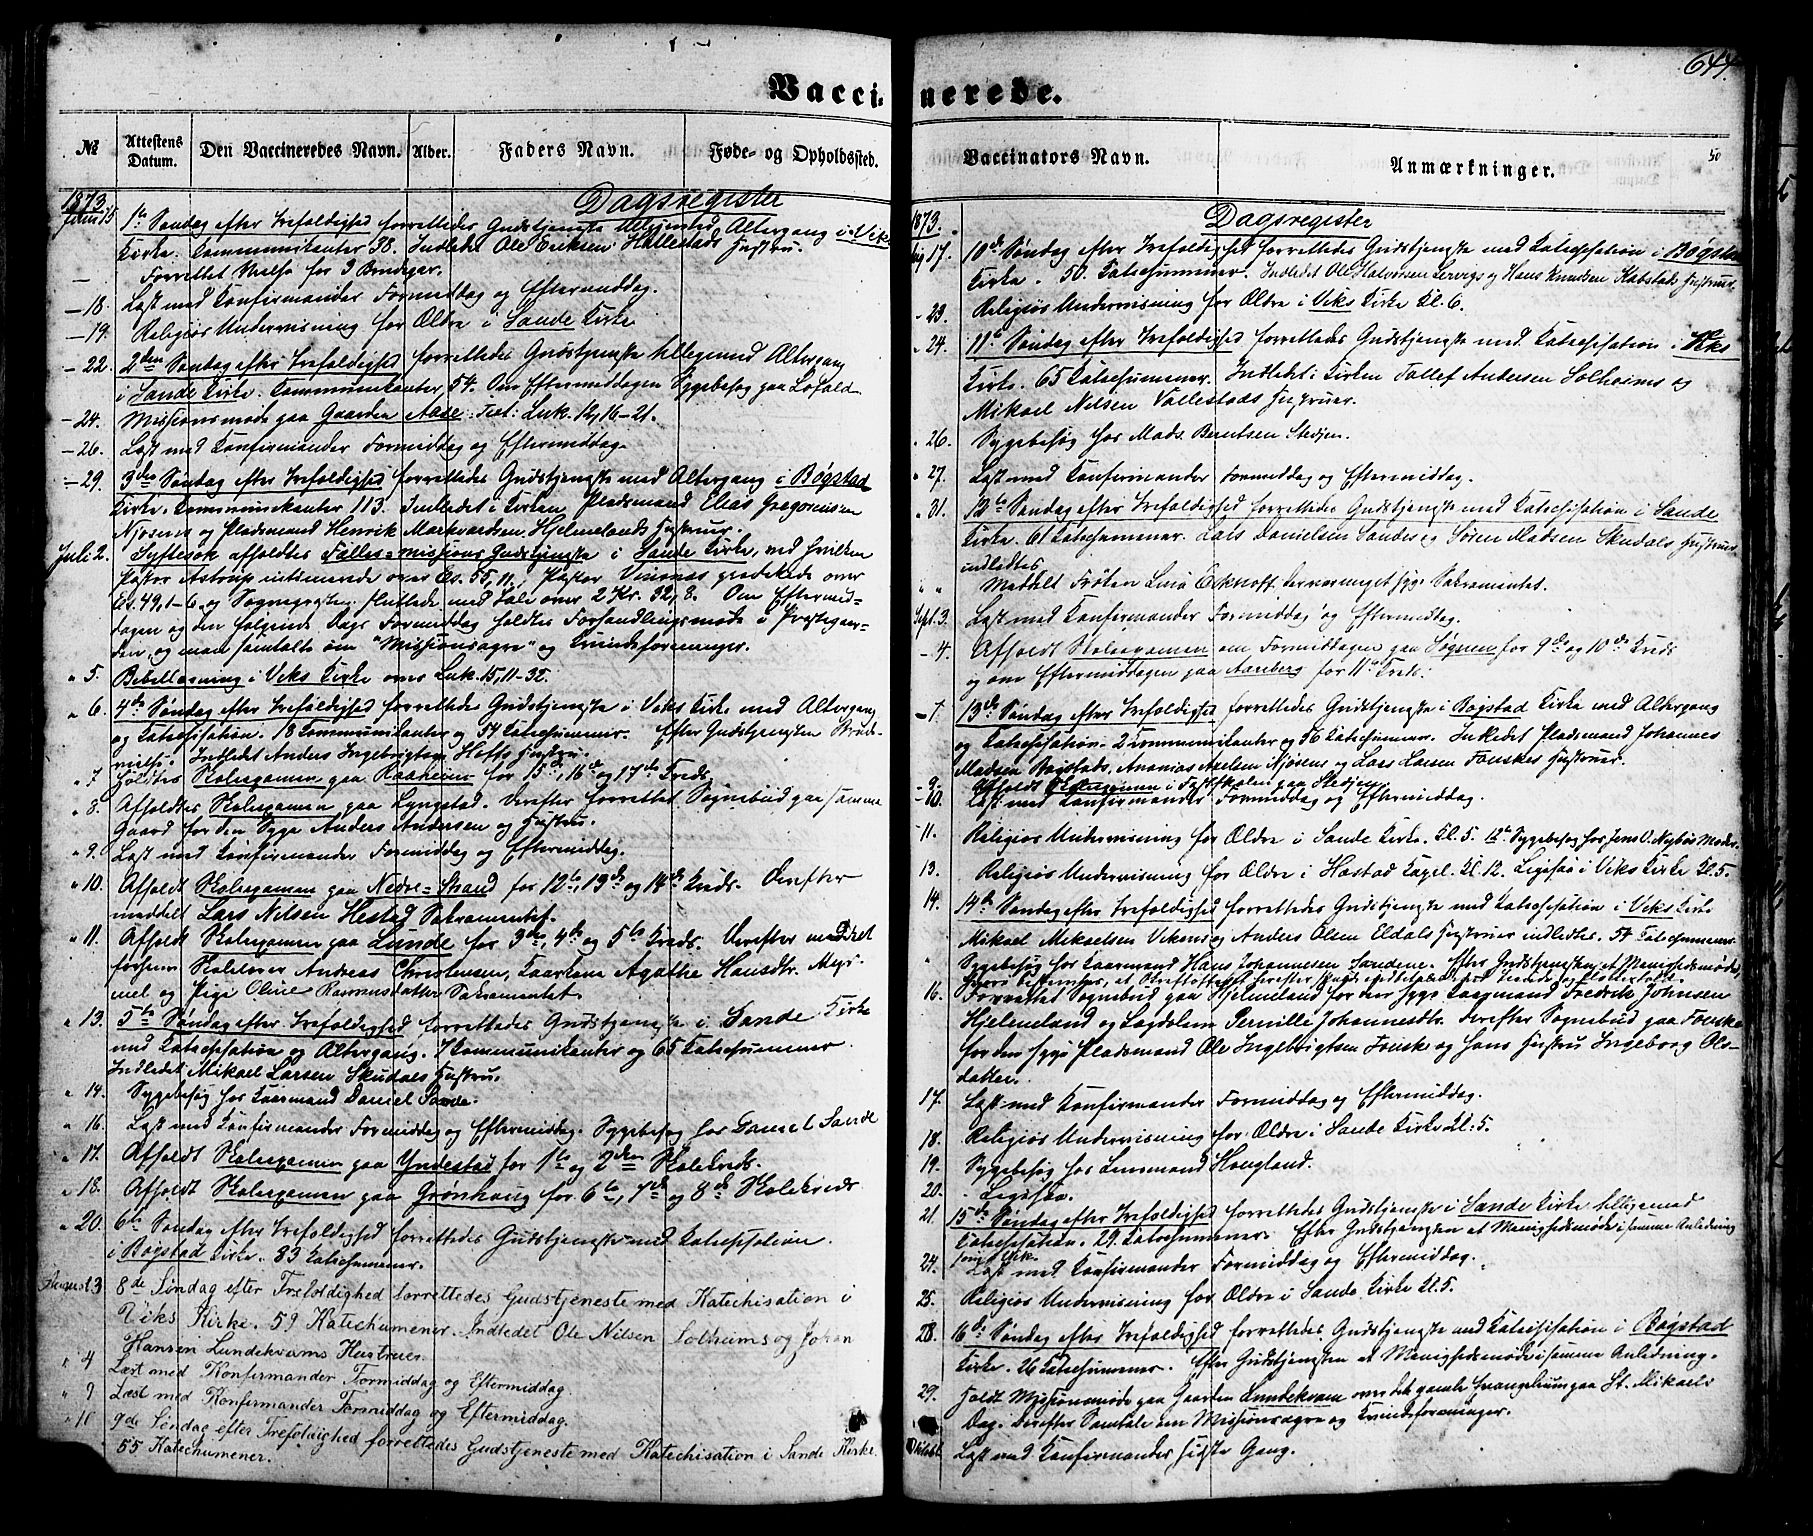 Vacci-
№
Attestens Datum.
Den Vaccineredes Navn.
Alder.
Faders Navn.
Føde- og Opholdssted.
1873. Dagsregister
Juni 15 1ste Søndag efter Trefoldighed forrettedes Gudstjeneste tilligemed Altergang i Viks
Kirke. Kommunikanter 38. Indledet Ole Eriksen Hallestads Hustru.
- Forrettet Vielse for 3 Brudepar.
- 18. Læst med Konfirmander Formiddag og Eftermiddag.
- 19. Religiøs Undervisning for Ældre i Sande Kirke
- 22. 2den Søndag efter Trefoldighed forrettedes Gudstjeneste tilligemed Altergang
i Sande Kirke. Kommunikanter 54. Om Eftermiddagen Sygebesøg paa Lofald
- 24. Missionsmøde paa Gaarden Aase. Text: Luk. 14, 16-21.
- 26. Læst med Konfirmander Formiddag og Eftermiddag.
- 29. 3die Søndag efter Trefoldighed forrettedes Gudstjeneste med Altergang i Bøgstad
Kirke. Kommunikanter 113. Indledet i Kirken Pladsmand Elias Gregoriusen
Njøsnes og Pladsmand Henrik Markvardsen Hjelmelands Hustruer.
Juli 2. Syftesok afholdtes Fælles-missions Gudstjeneste i Sande Kirke, ved hvilken
Pastor Astrup intimerede over Es. 55, 11, Pastor prædikede over
Es. 49, 1-6, og Sognepræsten sluttede med Tale over 2 Kr. 32, 8. Om Eftermid-
dagen og den følgende Dags Formiddag holdtes Forhandlingsmøde i Præstegaar-
den, og man samtalte om "Missionssagen" og Kvindeforeninger.
" 5. Bibellæsning i Viks Kirke over Luk. 15, 11-32.
" 6. 4de Søndag efter Trefoldighed forrettedes Gudstjeneste i Viks Kirke med Altergang
og Katechisation. 18 Kommunikanter og 54 Katechumener. Efter Gudstjenesten Brude-
vielse. Indledet Anders Ingebrigtsen Hofts Hustru.
" 7 Holdtes Skoleexamen paa Raaheim for 15de, 16de og 17de Kreds.
" 8. Afholdtes Skoleexamen paa Lyngstad. Derefter forrettet Sognebud paa samme
Gaard for den syge Anders Andersen og Hustru.
" 9. Læst med Konfirmander Formiddag og Eftermiddag.
" 10. Afholdt Skoleexamen paa Nedre-Strand for 12te, 13de og 14de Kreds. Derefter
meddelt Lars Nilsen Hestad Sakramentet.
" 11. Afholdt Skoleexamen paa Lunde for 3die, 4de og 5te Kreds. Derefter meddelt
forhenv. Skolelærer Andreas Christensen, Kaarkone Agathe Hansdtr.
mel og Pige Oline Rasmusdatter Sakramentet.
" 13. 5te Søndag efter Trefoldighed forrettedes Gudstjeneste i Sande Kirke
med Katechisation og Altergang. 7 Kommunikanter og 65 Katechumener.
Indledet Mikael Larsen Skudals Hustru.
" 14. Sygebesøg hos Kaarmand Daniel Sande.
" 16. Læst med Konfirmander Formiddag og Eftermiddag. Sygebesøg hos Daniel Sande
" 17. Afholdt Skoleexamen paa Yndestad for 1ste og 2den Skolekreds.
" 18. Afholdt Skoleexamen paa Grønhaug for 6te, 7de og 8de Skolekreds
" 20. 6te Søndag efter Trefoldighed forrettedes Gudstjeneste med Katechisation
i Bøgstad Kirke. 83 Katechumener.
August 3 8de Søndag efter Trefoldighed forrettedes Gudstjeneste med Katechisation i
Viks Kirke. 59 Katechumener. Indledet Ole Nilsen Solheims og Johan
Hansen Lundekvams Hustruer.
" 4 Læst med Konfirmander Formiddag og Eftermiddag.
" 9 Læst med Konfirmander Formiddag og Eftermiddag.
" 10 9de Søndag efter Trefoldighed forrettedes Gudstjeneste med Katechisation i Sande Kirke.
55 Katechumener.
nerede.
644.
Vaccinators Navn.
Anmærkninger.
50
1873. Dagsregister
Aug 17. 10de Søndag efter Trefoldighed forrettedes Gudstjeneste med Katechisation i Bøgstad
Kirke. 50 Katechumener. Indledet Ole Halvorsen Lervigs og Hans Knudsen Kalstads Hustruer.
- 23. Religiøs Undervisning for Ældre i Viks Kirke Kl. 6.
" 24. 11te Søndag efter Trefoldighed forrettedes Gudstjeneste med Katechisation i Viks
Kirke. 65 Katechumener. Indledet i Kirken Tollef Andersen Solheims og
Mikael Nilsen Vallestads Hustruer.
" 26. Sygebesøg hos Mads Berntsen Stedjen.
" 27. Læst med Konfirmander Formiddag og Eftermiddag.
" 31. 12te Søndag efter Trefoldighed forrettedes Gudstjeneste med Katechisation i Sande
Kirke. 61 Katechumener. Lars Danielsen Sandes og Søren Madsen Skudals Hustruer
indledtes.
" " Meddelt Frøken Lina Sakramentet.
Sept. 3. Læst med Konfirmander Formiddag og Eftermiddag.
- 4. Afholdt Skoleexamen om Formiddagen paa Søgnen for 9de og 10de Kreds
og om Eftermiddagen paa Aarberg for 11te Kreds.
- 7. 13de Søndag efter Trefoldighed forrettedes Gudstjeneste i Bøgstad Kirke med Altergang
og Katechisation. 2 Kommunikanter og 56 Katechumener. Indledet Pladsmand Johannes
Madsen Bøgstads, Ananias Axelsen Njøsens og Lars Larsen Fonskes Hustruer.
- 9. Afholdt Examen i Fastskolen paa Stedjen.
- 10. Læst med Konfirmander Formiddag og Eftermiddag.
- 11. Religiøs Undervisning for Ældre i Sande Kirke. Kl. 5. Sygebesøg hos Jens Nybøs Moder.
13. Religiøs Undervisning for Ældre i Hæstad Kapel Kl. 12. Ligesaa i Viks Kirke Kl. 5.
14. 14de Søndag efter Trefoldighed forrettedes Gudstjeneste med Katechisation i Viks Kirke
Mikael Mikaelsen Vikens og Anders Olsen Eldals Hustruer indledtes. 54 Katechumener.
" Sygebesøg hos Kaarmand Hans Johannesen Sandene. Efter Gudstjenesten et Menighedsmøde,
16. Forrettet Sognebud paa Hjelmeland for den syge Kaarmand Fredrik Johnsen
Hjelmeland og Lægdslem Pernille Johannesdtr. Derefter Sognebud paa Fonske
for den syge Pladsmand Ole Ingebrigtsen Fonske og hans Hustru Ingeborg Ols-
datter.
17. Læst med Konfirmander Formiddag og Eftermiddag.
18. Religiøs Undervisning for Ældre i Sande Kirke Kl. 5.
19. Sygebesøg hos Lensmand Hougland.
20. Ligesaa.
21. 15de Søndag efter Trefoldighed forrettedes Gudstjeneste i Sande Kirke tilligemed
Katechisation. 29 Katechumener. Efter Gudstjenesten et Menighedsmøde i samme Anledning
som i Vik.
24. Læst med Konfirmander Formiddag og Eftermiddag.
25. Religiøs Undervisning for Ældre i Sande Kirke Kl. 5.
28. 16de Søndag efter Trefoldighed forrettedes Gudstjeneste med Katechisation i Bøgstad
Kirke. 26 Katechumener. Efter Gudstjenesten et Menighedsmøde i samme Anledning.
29. Holdt Missionsmøde paa Gaarden Lundekvam over det gamle Evangelium paa St. Mikaels
Dag. Derefter Samtale om Missionssagen og Kvindeforeninger.
Læst med Konfirmander sidste Gang.